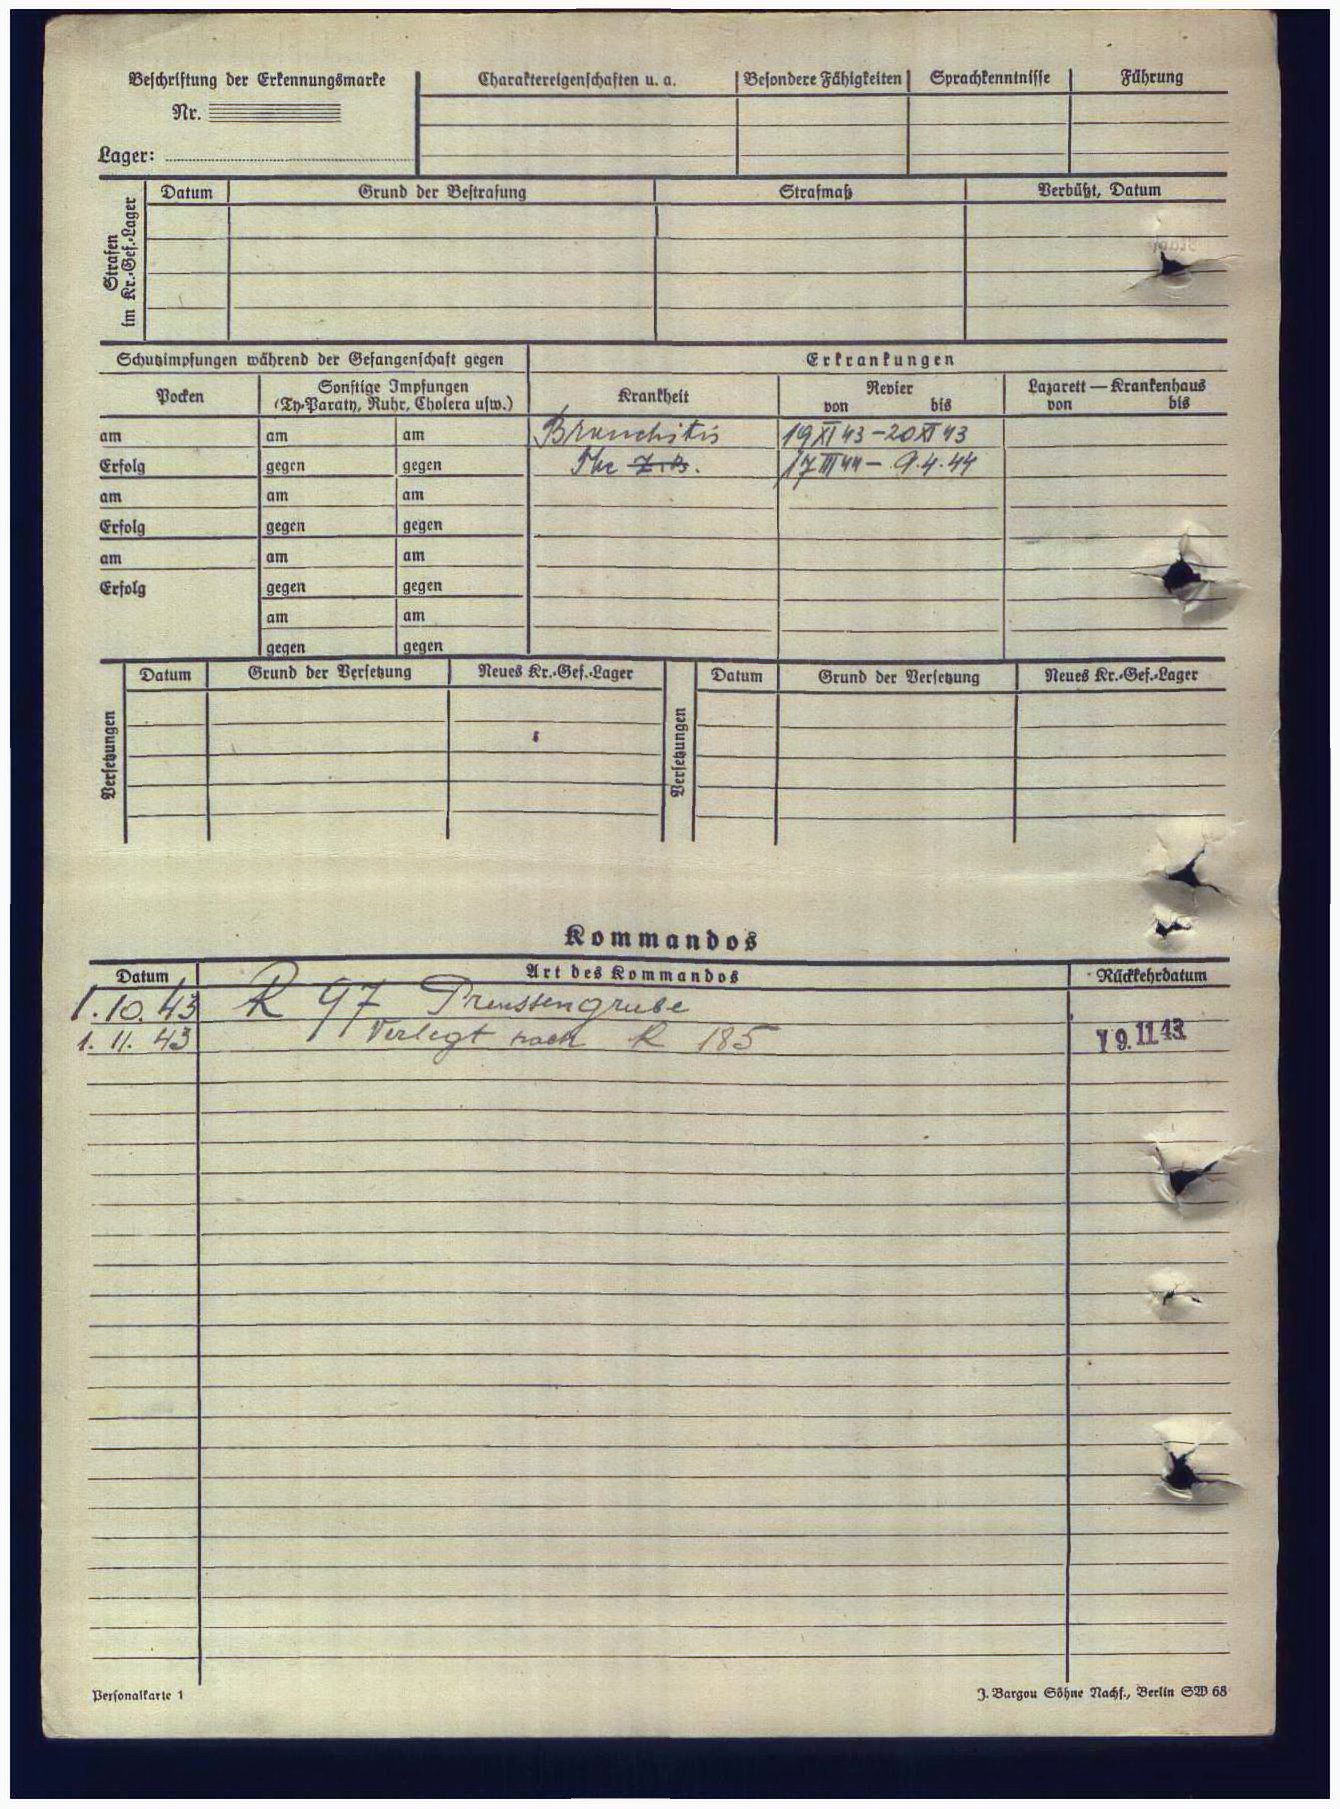 Beschriftung der Erkennungsmarke
Nr.
Lager:
Charaktereigenschaften u. a. Besondere Fähigkeiten Sprachkenntnisse Führung
Strafen
im Kr.-Gef.-Lager
Datum Grund der Bestrafung Strafmaß Verbüßt, Datum
Schutzimpfungen während der Gefangenschaft gegen
Erkrankungen
Pocken
Sonstige Impfungen
(Ty-Paraty, Ruhr, Cholera usw.)
Krankheit
Revier
von bis
Lazarett — Krankenhaus
von bis
am am am Bronchitis 19 XI 43 – 20 XI 43
Erfolg gegen gegen Tbc 17 III 44 – 9.4.44
am am am
Erfolg gegen gegen
am am am
Erfolg gegen gegen
am am
gegen gegen
Versetzungen
Datum Grund der Versetzung Neues Kr.-Gef.-Lager
Versetzungen
Datum Grund der Versetzung Neues Kr.-Gef.-Lager
Kommandos
Datum Art des Kommandos Rückkehrdatum
1.10.43 R 97 Preussengrube
1.11.43 Verlegt nach R 185 19.11.43
Personalkarte 1
J. Bargou Söhne Nachf., Berlin SW 68